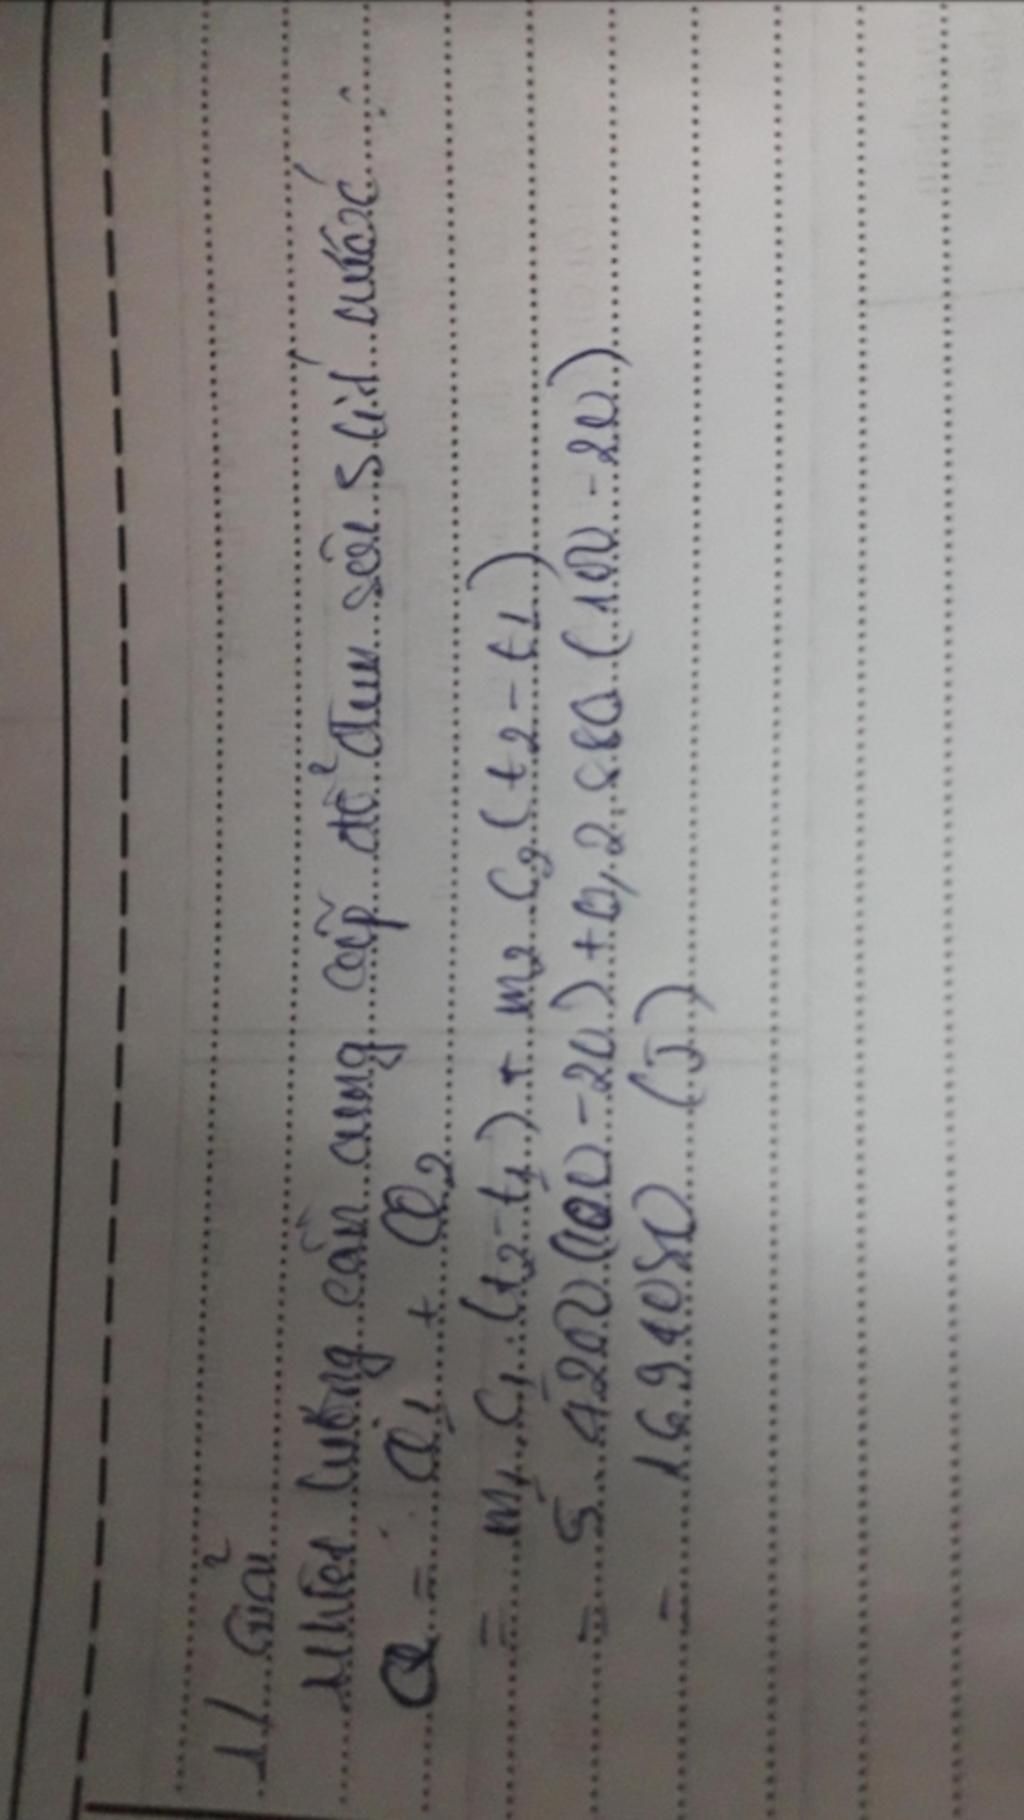 1/ Giải
Nhiệt lượng cần cung cấp để đun sôi 5 lít nước:
Q = Q1 + Q2
= m1.C1.(t2-t1) + m2 C2(t2-t1)
= 5.4200(100-20)+0,2.880(100-20)
= 1694080 (J)